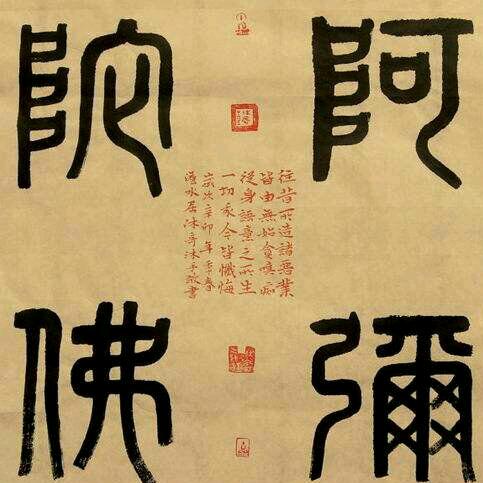 阿彌
陀佛
往昔所造諸惡業
皆由無始貪嗔痴
從身語意之所生
一切我今皆懺悔
歲次辛卯年季春
水居沐沐手敬書